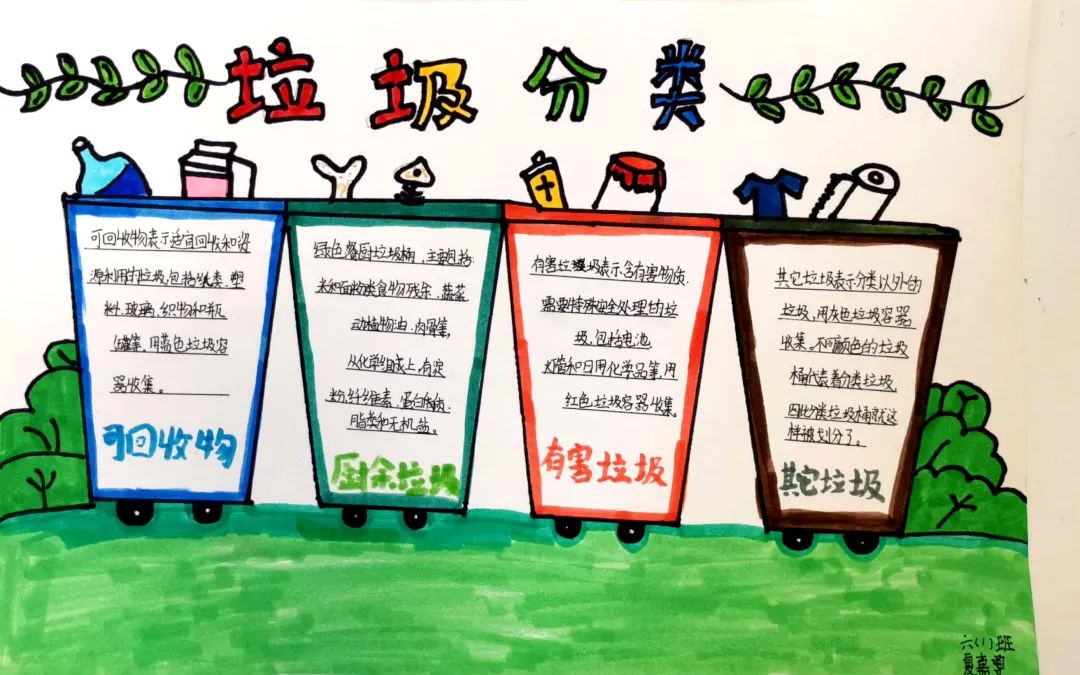 垃圾分类
可回收物表示适宜回收和资
源利用的垃圾,包括纸类、塑
料、玻璃、织物和瓶
罐等,用蓝色垃圾容
器收集。
可回收物
绿色餐厨垃圾桶,主要包括:
米和面粉类食物残余、蔬菜
动植物油、肉骨等,
从化学组成上,有淀
粉、纤维素、蛋白质、
脂类和无机盐。
厨余垃圾
有害垃圾表示含有害物质.
需要特殊安全处理的垃
圾,包括电池
灯管和日用化学品等,用
红色垃圾容器收集。
有害垃圾
其它垃圾表示分类以外的
垃圾,用灰色垃圾容器
收集。不同颜色的垃圾
桶代表着分类垃圾,
因此分类垃圾桶就这
样被划分了。
其它垃圾
六(1)班
夏嘉